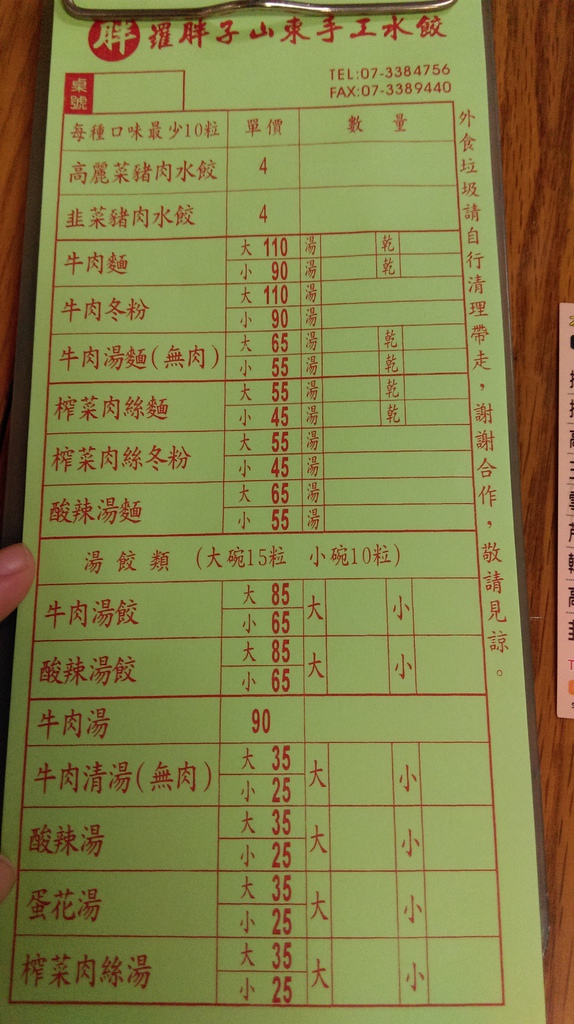 胖 羅胖子山東手工水餃
TEL:07-3384756
FAX:07-3389440
桌號
每種口味最少10粒 單價 數量
高麗菜豬肉水餃 4
韭菜豬肉水餃 4
牛肉麵 大 110 湯 乾
小 90 湯 乾
牛肉冬粉 大 110 湯
小 90 湯
牛肉湯麵(無肉) 大 65 湯 乾
小 55 湯 乾
榨菜肉絲麵 大 55 湯 乾
小 45 湯 乾
榨菜肉絲冬粉 大 55 湯
小 45 湯
酸辣湯麵 大 65 湯
小 55 湯
湯餃類 (大碗15粒 小碗10粒)
牛肉湯餃 大 85 大 小
小 65
酸辣湯餃 大 85 大 小
小 65
牛肉湯 90
牛肉清湯(無肉) 大 35 大 小
小 25
酸辣湯 大 35 大 小
小 25
蛋花湯 大 35 大 小
小 25
榨菜肉絲湯 大 35 大 小
小 25
外食垃圾請自行清理帶走，謝謝合作，敬請見諒。